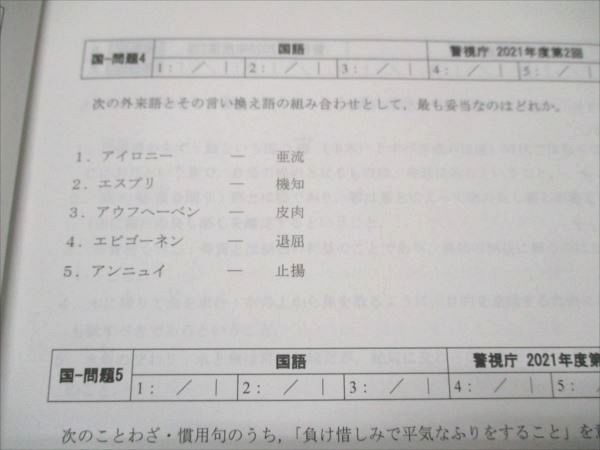 国-問題4 国語 警視庁 2021年度第2回
1: ／ | 2: ／ | 3: ／ | 4: ／ | 5: ／
次の外来語とその言い換え語の組み合わせとして，最も妥当なのはどれか。
1．アイロニー — 亜流
2．エスプリ — 機知
3．アウフヘーベン — 皮肉
4．エピゴーネン — 退屈
5．アンニュイ — 止揚
国-問題5 国語 警視庁 2021年度第
1: ／ | 2: ／ | 3: ／ | 4: ／ | 5: ／
次のことわざ・慣用句のうち，「負け惜しみで平気なふりをすること」を意